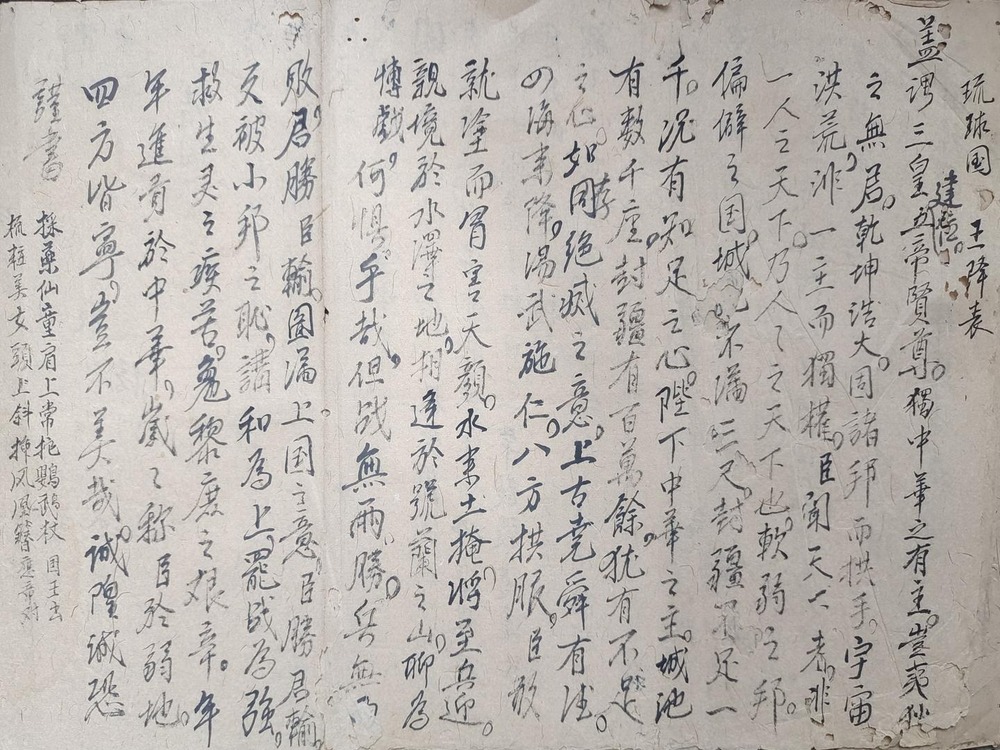 琉球国王降表
建隆。
盖谓三皇五帝賢尊。獨中華之有主。豈夷狄
之無君。乾坤浩大。同諸邦而拱手。宇宙
洪荒。非一主而獨權。臣聞天下者。非
一人之天下。乃人人之天下也。軟弱之邦。
偏僻之国。城池不滿三尺。封疆不足一
千。況有知足之心。陛下中華之主。城池
有數千座。封疆有百萬餘。犹有不足
之心。如同絕滅之意。上古堯舜有德。
四海来降。湯武施仁。八方拱服。臣敢
就塗而冒害天顏。水来土掩。将至兵迎。
親境於水澤之地。相逢於號蘭之山。聊為
博戲。何惧乎哉。但战無兩勝。兵無
敗。君勝臣輸。圖滿上国之意。臣勝君輸。
反被小邦之耻。講和為上。罷战為強。
救生灵之疾苦。免黎庶之艱辛。年
年進貢於中華。歲歲称臣於弱地。
四方皆寧。豈不美哉。誠隍誠恐
謹書
採藥仙童肩上常拖鸚鵡杖 国王出
梳粧美女頭上斜揷凤凰簪 應